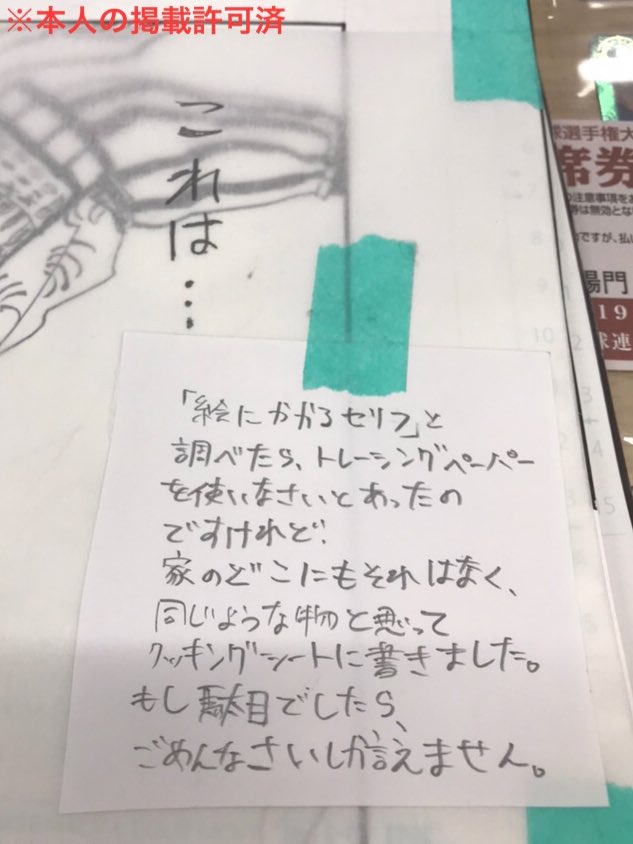 ※本人の掲載許可済
これは…
「絵にかかるセリフ」と
調べたら、トレーシングペーパー
を使いなさいとあったの
ですけれど!
家のどこにもそれはなく、
同じような物と思って
クッキングシートに書きました。
もし駄目でしたら、
ごめんなさいしか言えません。
球選手権大
席券
の注意事項をお
券は無効とな
ですが、払い
場門
19
球連